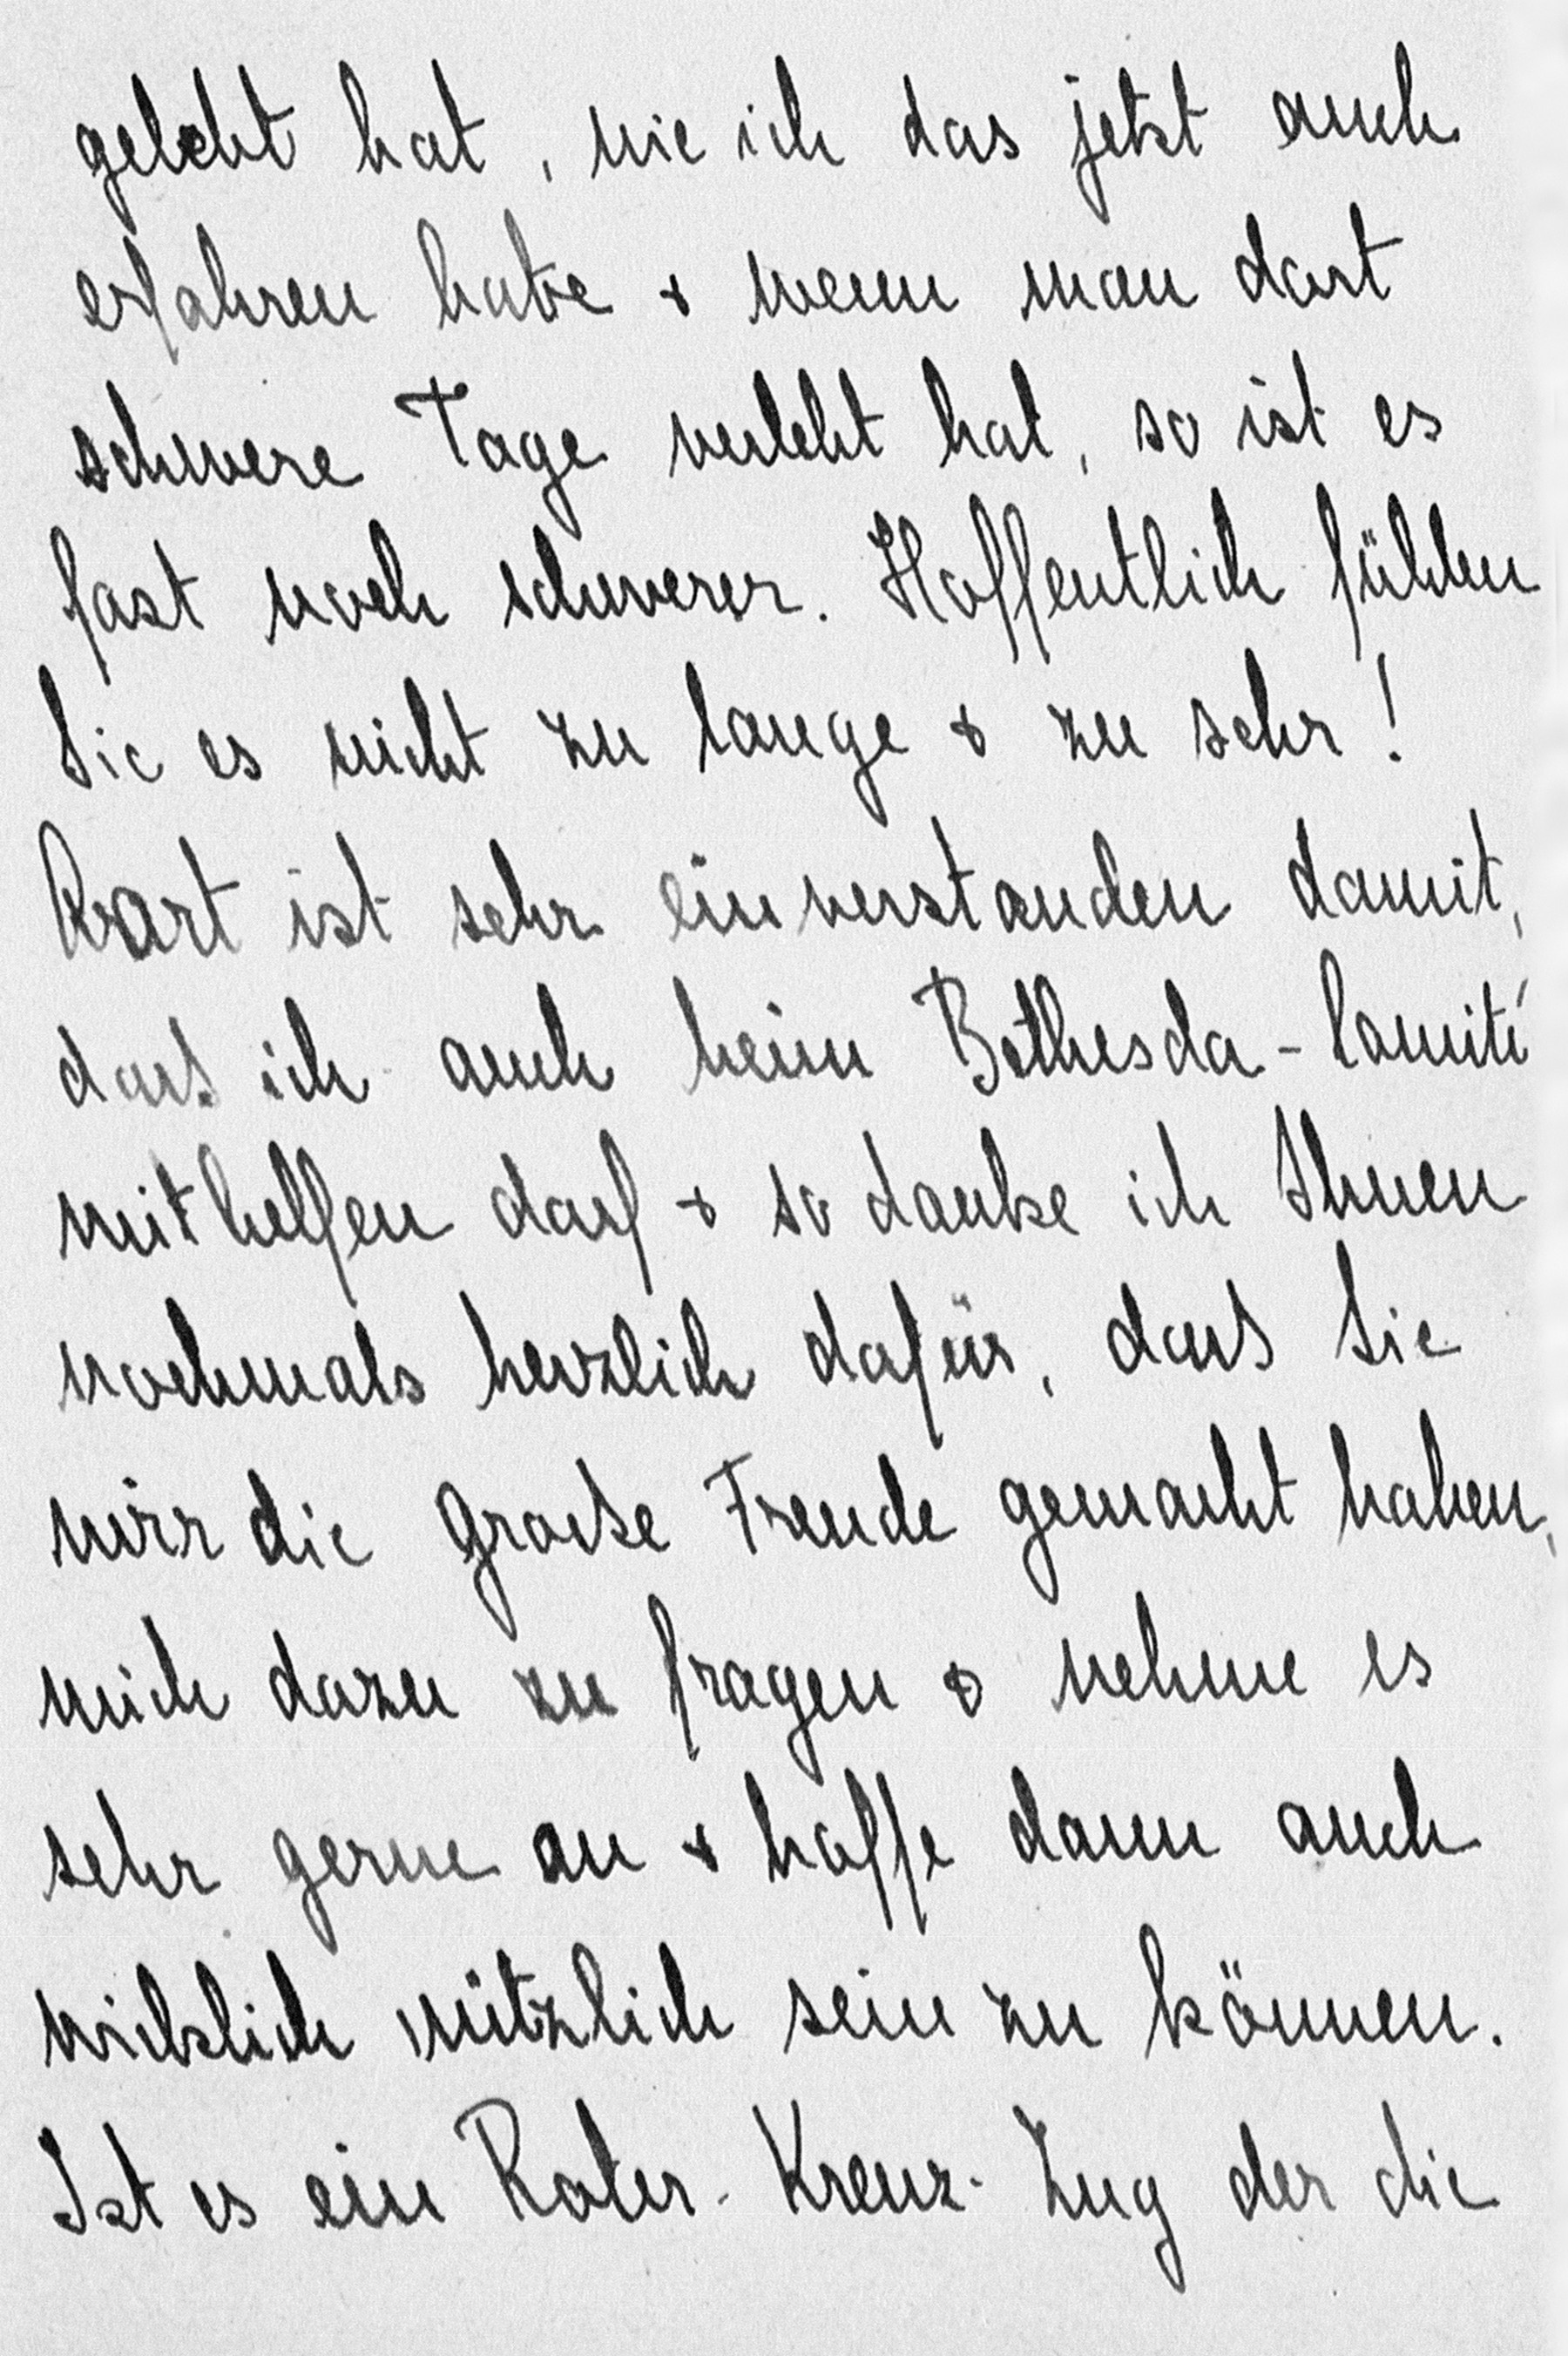 gelebt hat, wie ich das jetzt auch
erfahren habe & wenn man dort
schwere Tage verlebt hat, so ist es
fast noch schwerer. Hoffentlich fühlen
Sie es nicht zu lange & zu sehr!
ist sehr einverstanden damit,
dass ich auch beim Bethesda-Comité
mithelfen darf & so danke ich Ihnen
nochmals herzlich dafür, dass Sie
mir die grosse Freude gemacht haben,
mich dazu zu fragen & nehme es
sehr gerne an & hoffe dann auch
wirklich nützlich sein zu können.
Ist es ein Roter-Kreuz-Zug der die